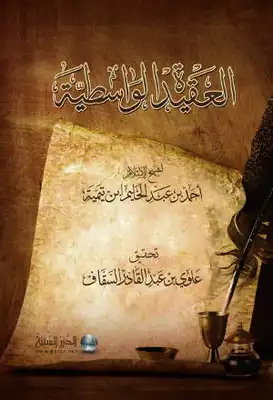 العقيدة الواسطية
لشيخ الإسلام
أحمد بن عبد الحليم ابن تيمية
تحقيق
علوي بن عبد القادر السقاف
الدرر السنية